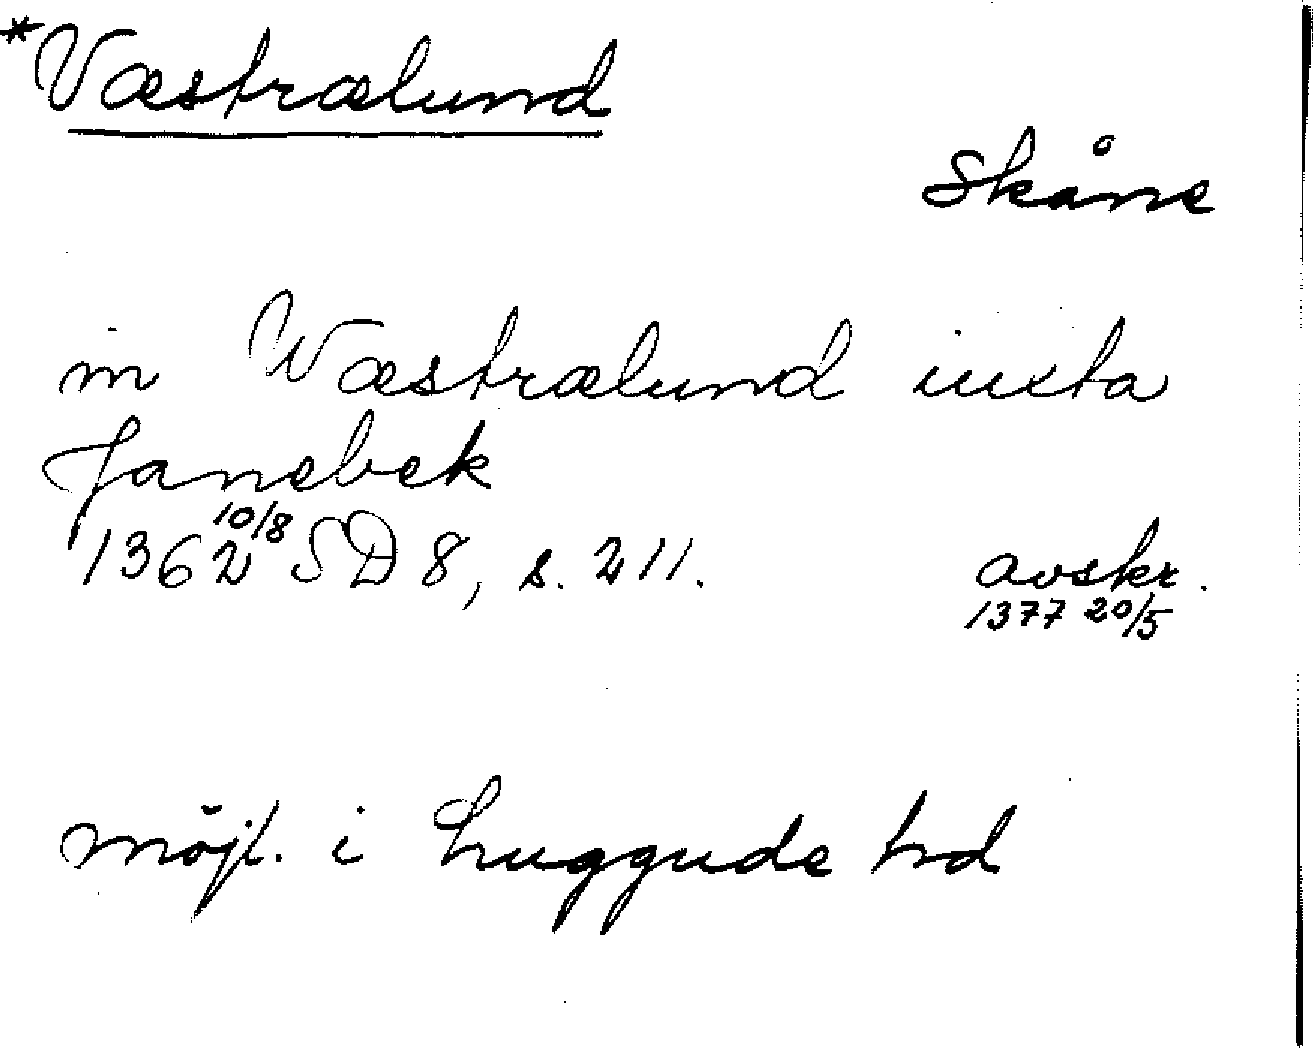 *Væstrælund
Skåne
in Wæstrælund iuxta
Fanebek
1362 10/8 SD 8, s. 211.
avskr.
1377 20/5
möjl. i Luggude hd